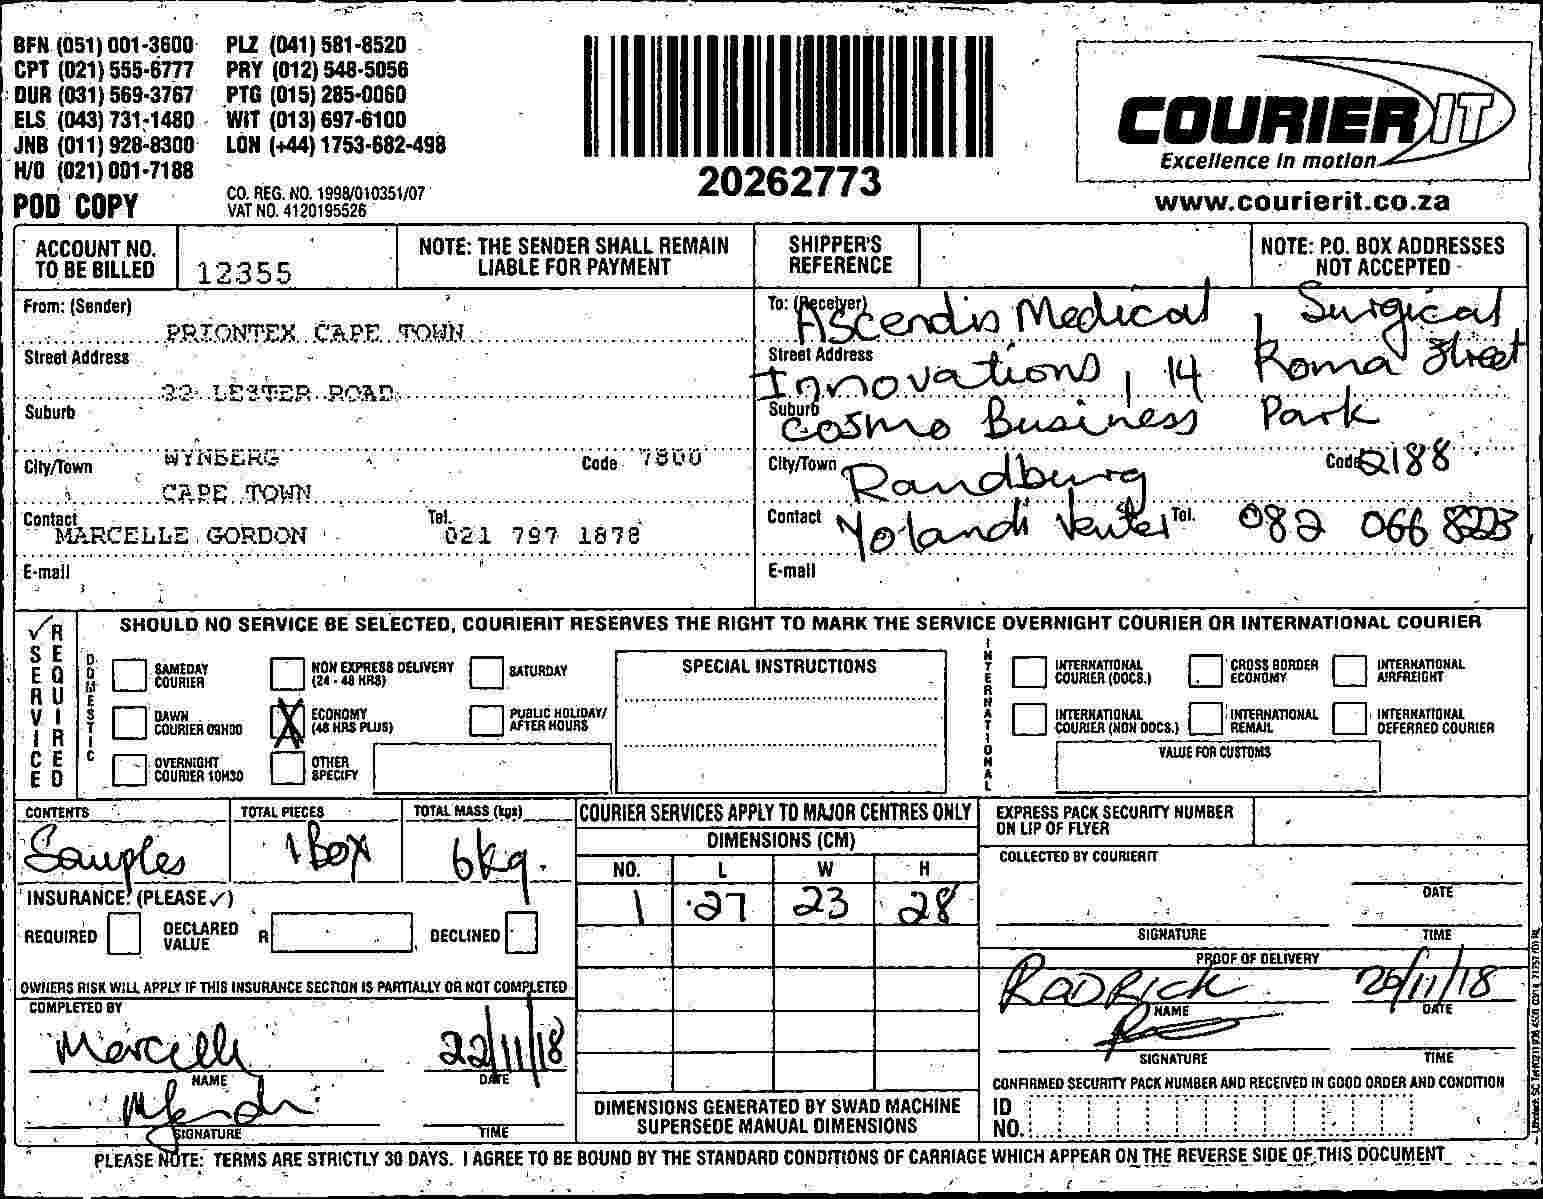 BFN (051) 001-3600 PLZ (041) 581-8520
CPT (021) 555-6777 PRY (012) 548-5056
DUR (031) 569-3767 PTG (015) 285-0060
ELS (043) 731-1480 WIT (013) 697-6100
JNB (011) 928-8300 LON (+44) 1753-682-498
H/O (021) 001-7188
POD COPY
CO. REG. NO. 1998/010351/07
VAT NO. 4120195526
20262773
COURIER IT
Excellence in motion
www.courierit.co.za
ACCOUNT NO. TO BE BILLED 12355
NOTE: THE SENDER SHALL REMAIN LIABLE FOR PAYMENT
SHIPPER'S REFERENCE
NOTE: P.O. BOX ADDRESSES NOT ACCEPTED
From: (Sender)
PRIONTEX CAPE TOWN
Street Address
32 LESTER ROAD
Suburb
WYNBERG
City/Town Code 7800
CAPE TOWN
Contact MARCELLE GORDON Tel. 021 797 1878
E-mail
To: (Receiver) Ascendis Medical, Surgical
Street Address Innovations, 14 Roma Street
Suburb Cosmo Business Park
City/Town Randburg Code 2188
Contact Yolandi Venter Tel. 082 066 8223
E-mail
√ SERVICE REQUIRED
SHOULD NO SERVICE BE SELECTED, COURIERIT RESERVES THE RIGHT TO MARK THE SERVICE OVERNIGHT COURIER OR INTERNATIONAL COURIER
DOMESTIC
SAMEDAY COURIER
NON EXPRESS DELIVERY (24 - 48 HRS)
SATURDAY
DAWN COURIER 09H00
X ECONOMY (48 HRS PLUS)
PUBLIC HOLIDAY/ AFTER HOURS
OVERNIGHT COURIER 10H30
OTHER SPECIFY
SPECIAL INSTRUCTIONS
INTERNATIONAL
INTERNATIONAL COURIER (DOCS.)
CROSS BORDER ECONOMY
INTERNATIONAL AIRFREIGHT
INTERNATIONAL COURIER (NON DOCS.)
INTERNATIONAL REMAIL
INTERNATIONAL DEFERRED COURIER
VALUE FOR CUSTOMS
CONTENTS TOTAL PIECES TOTAL MASS (kgs)
Samples 1 Box 6kg.
INSURANCE: (PLEASE ✓)
REQUIRED DECLARED VALUE R DECLINED
OWNERS RISK WILL APPLY IF THIS INSURANCE SECTION IS PARTIALLY OR NOT COMPLETED
COMPLETED BY
Marcelle 22/11/18
NAME DATE
SIGNATURE TIME
COURIER SERVICES APPLY TO MAJOR CENTRES ONLY
DIMENSIONS (CM)
NO. L W H
1 27 23 28
DIMENSIONS GENERATED BY SWAD MACHINE SUPERSEDE MANUAL DIMENSIONS
EXPRESS PACK SECURITY NUMBER ON LIP OF FLYER
COLLECTED BY COURIERIT
DATE
SIGNATURE TIME
PROOF OF DELIVERY
RODRICK 26/11/18
NAME DATE
SIGNATURE TIME
CONFIRMED SECURITY PACK NUMBER AND RECEIVED IN GOOD ORDER AND CONDITION
ID NO.
PLEASE NOTE: TERMS ARE STRICTLY 30 DAYS. I AGREE TO BE BOUND BY THE STANDARD CONDITIONS OF CARRIAGE WHICH APPEAR ON THE REVERSE SIDE OF THIS DOCUMENT